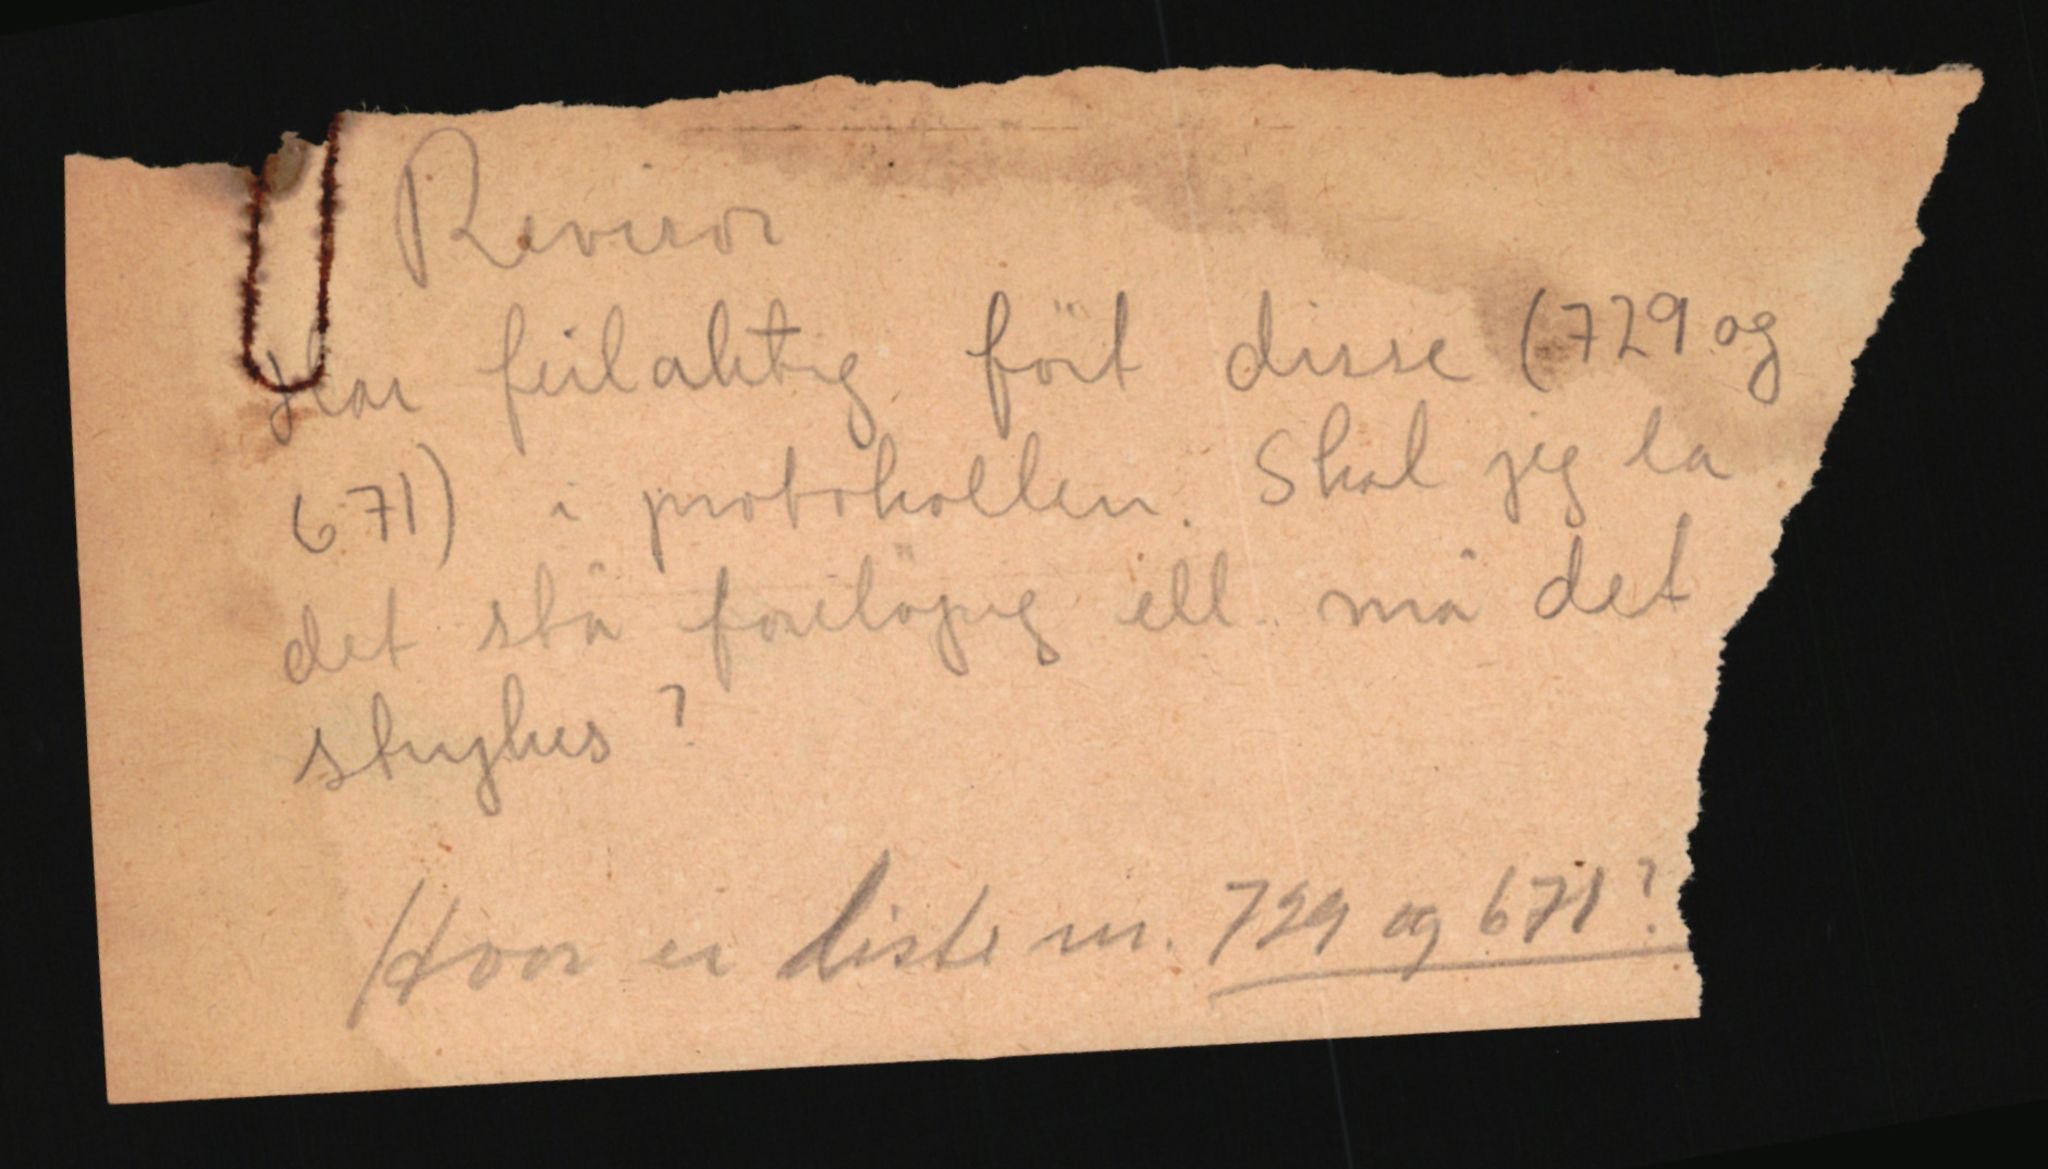 Revisor
Har feilaktig fört disse (729 og
671) i protokollen. Skal jeg la
det stå foreløpig ell. må det
strykes?
Hvor er liste nr. 729 og 671?